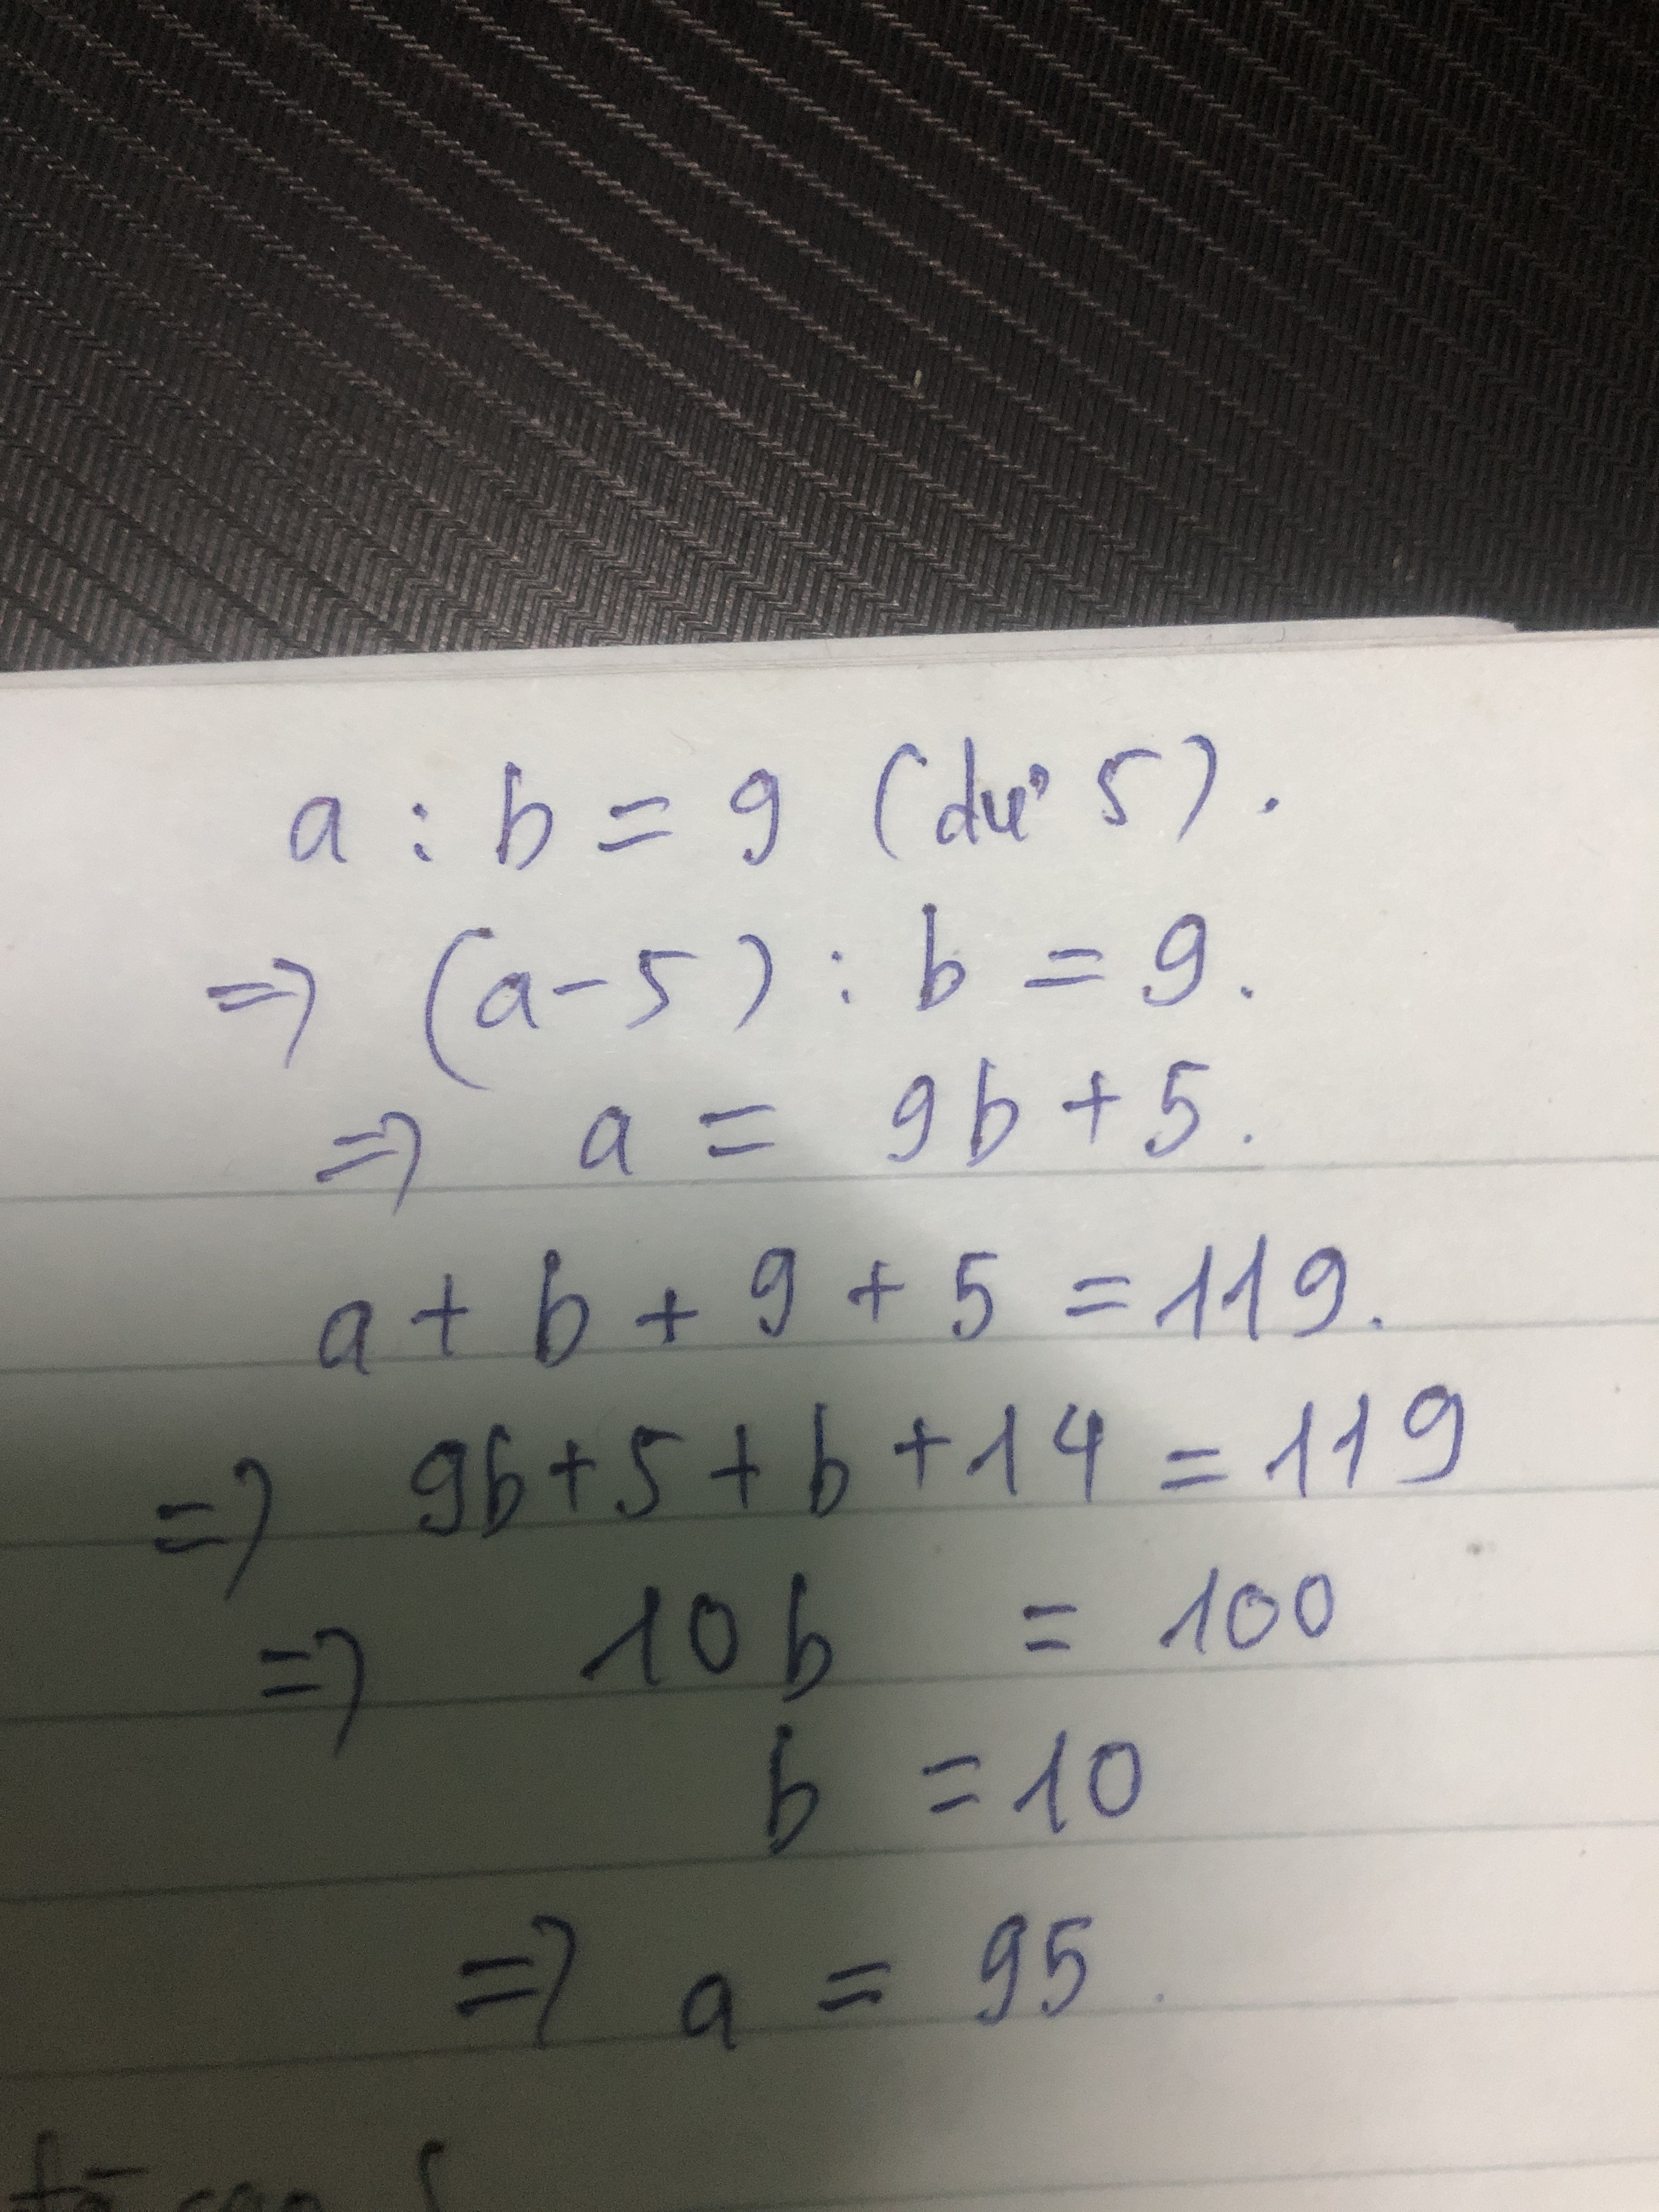 a : b = 9 (dư 5).
=> (a-5) : b = 9.
=> a = 9b + 5.
a + b + 9 + 5 = 119.
=> 9b + 5 + b + 14 = 119
=> 10b = 100
b = 10
=> a = 95.